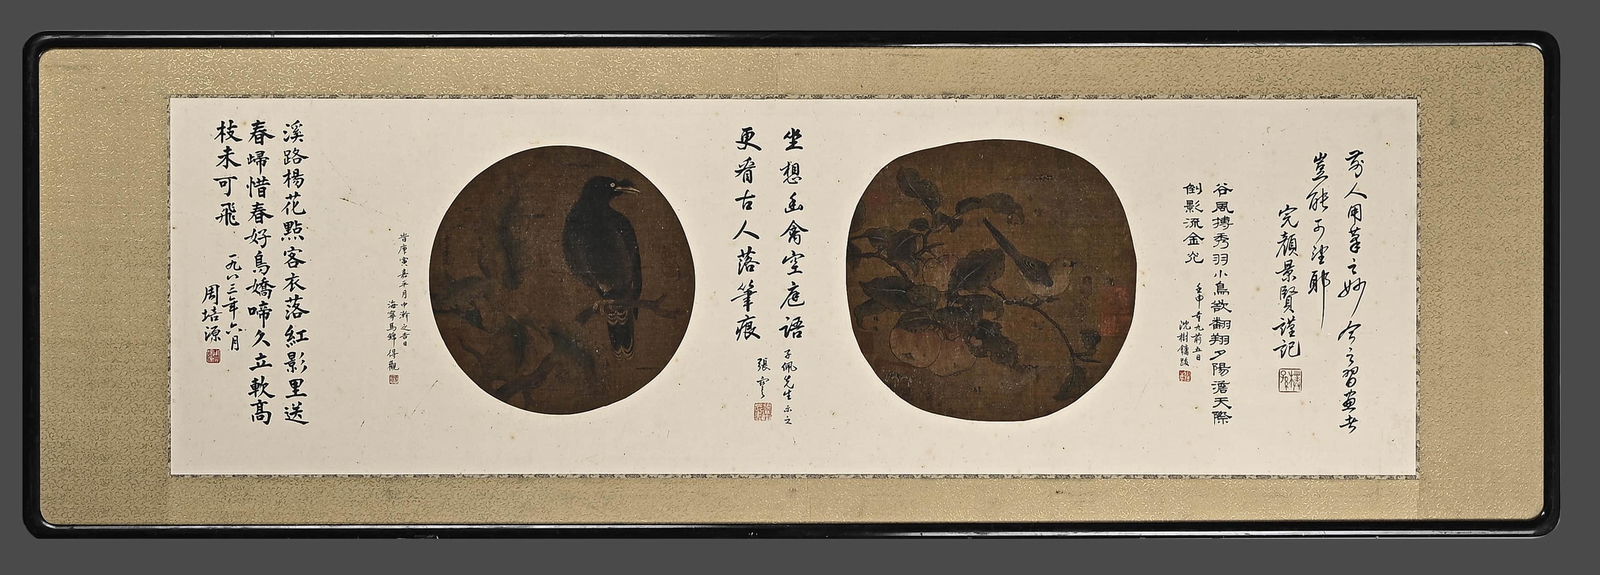 前人用筆之妙今之習画者
豈能可望耶
完顏景賢謹記
谷風摶秀羽小鳥欲翻翔夕陽滄天際
倒影流金
壬申
沈樹鏞跋
坐想幽禽空庭語
更看古人落筆痕
子佩先生
張
昔庚寅嘉平月中澣之吉日
海寧馬錦得觀
溪路楊花點客衣落紅影里送
春歸惜春好鳥嬌啼久立軟高
枝未可飛
一九八三年六月
周培源